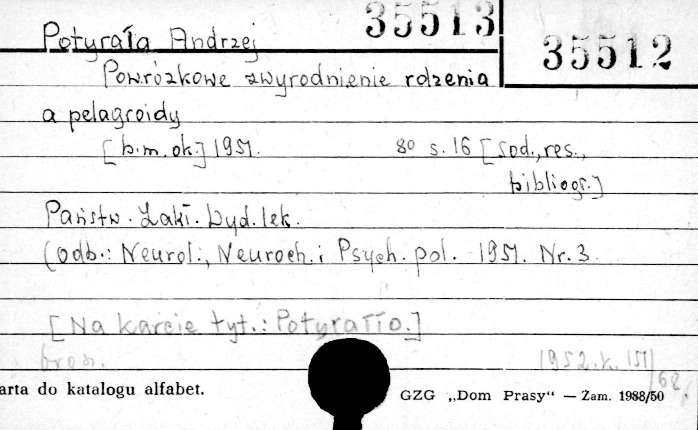 35513
Potyrała Andrzej
35512
Powrózkowe zwyrodnienie rdzenia
a pelagroidy
[b.m.ok.] 1951. 8o s. 16 [sod., res.,
bibliogr.]
Państw. Zakł. Wyd. lek.
(odb.: Neurol., Neuroch. i Psych. pol. 1951. Nr. 3
[Na karcie tyt.: Potyrałło.]
bros.
1952.k. 151/68.
arta do katalogu alfabet.
GZG „Dom Prasy" — Zam. 1988/50